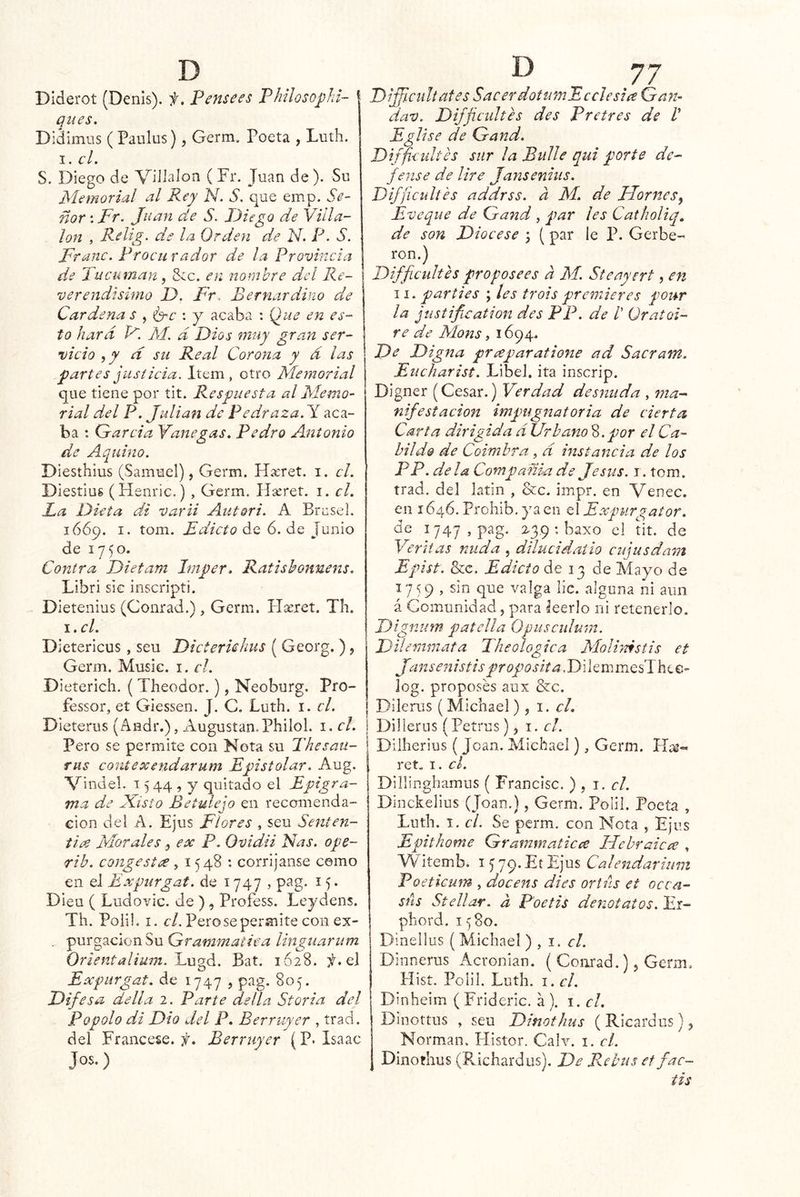 D
Diderot (Denis). ℣. Pensees Philosophi-
ques.
Didimus ( Paulus ) , Germ. Poeta , Luth.
1. cl.
S. Diego de Villalon ( Fr. Juan de ). Su
Memorial al Rey N. S. que emp. Se-
ñor : Fr. Juan de S. Diego de Villa-
lon , Relig. de la Orden de N. P. S.
Franc. Procurador de la Provincia
de Tucuman , &c. en nombre del Re-
verendisimo D. Fr. Bernardino de
Cardenas , &c : y acaba : Que en es-
to hará V. M. á Dios muy gran ser-
vicio , y á su Real Corona y á las
partes justicia. Item , otro Memorial
que tiene por tit. Respuesta al Memo-
rial del P. Julian de Pedraza. Y aca-
ba : Garcia Vanegas. Pedro Antonio
de Aquino.
Diesthius (Samuel) , Germ. Hæret. 1. cl.
Diestius ( Henric. ) , Germ. Hæret. 1. cl.
La Dieta di varii Autori. A Brusel.
1669. 1. tom. Edicto de 6. de Junio
de 1750.
Contra Dietam Imper. Ratisbonnens.
Libri sic inscripti.
Dietenius (Conrad.) , Germ. Hæret. Th.
1. cl.
Dietericus , seu Dicterichus ( Georg. ) ,
Germ. Music. 1. cl.
Dieterich. ( Theodor. ) , Neoburg. Pro-
fessor, et Giessen. J. C. Luth. 1. cl.
Dieterus (Andr.) , Augustan. Philol. 1. cl.
Pero se permite con Nota su Thesau-
rus contexendarum Epistolar. Aug.
Vindel. 1544 , y quitado el Epigra-
ma de Xisto Betulejo en recomenda-
cion del A. Ejus Flores , seu Senten-
tiæ Morales , ex P. Ovidii Nas. ope-
rib. congestæ , 1548 : corrijanse como
en el Expurgat. de 1747 , pag. 15.
Dieu ( Ludovic. de ) , Profess. Leydens.
Th. Polil. 1. cl. Pero se permite con ex-
purgacion Su Grammatica linguarum
Orientalium. Lugd. Bat. 1628. ℣. el
Expurgat. de 1747 , pag. 805.
Difesa della 2. Parte della Storia del
Popolo di Dio del P. Berruyer , trad.
del Francese. ℣. Berruyer ( P. Isaac
Jos. )
D 77
Difficultates Sacerdotum Ecclesiæ Gan-
dav. Difficultès des Pretres de l'
Eglise de Gand.
Difficultès sur la Bulle qui porte de-
fense de lire Jansenius.
Difficultès addrss. à M. de Hornes,
Eveque de Gand , par les Catholiq.
de son Diocese ; ( par le P. Gerbe-
ron.)
Difficultès proposees à M. Steayert , en
11. parties ; les trois premieres pour
la justification des PP. de l' Oratoi-
re de Mons , 1694.
De Digna præparatione ad Sacram.
Eucharist. Libel. ita inscrip.
Digner ( Cesar. ) Verdad desnuda , ma-
nifestacion impugnatoria de cierta
Carta dirigida á Urbano 8. por el Ca-
bildo de Coimbra , á instancia de los
PP. de la Compañia de Jesus. 1. tom.
trad. del latin , &c. impr. en Venec.
en 1646. Prohib. ya en el Expurgator.
de 1747 , pag. 239 : baxo el tit. de
Veritas nuda , dilucidatio cujusdam
Epist. &c. Edicto de 13 de Mayo de
1759 , sin que valga lic. alguna ni aun
á Comunidad , para leerlo ni retenerlo.
Dignum patella Opusculum.
Dilemmata Theologica Molinistis et
Jansenistis proposita. Dilemmes Theo-
log. proposès aux &c.
Dilerus ( Michael ) , 1. cl.
Dillerus ( Petrus ) , 1. cl.
Dilherius ( Joan. Michael ) , Germ. Hæ-
ret. 1. cl.
Dillinghamus ( Francisc. ) , 1. cl.
Dinckelius (Joan.) , Germ. Polil. Poeta ,
Luth. 1. cl. Se perm. con Nota , Ejus
Epithome Grammaticæ Hebraicæ ,
Witemb. 1579. Et Ejus Calendarium
Poeticum , docens dies ortûs et occa-
sûs Stellar. à Poetis denotatos. Er-
phord. 1580.
Dinellus ( Michael ) , 1. cl.
Dinnerus Acronian. ( Conrad. ) , Germ.
Hist. Polil. Luth. 1. cl.
Dinheim ( Frideric. à ). 1. cl.
Dinottus , seu Dinothus ( Ricardus ) ,
Norman. Histor. Calv. 1. cl.
Dinothus (Richardus). De Rebus et fac-
tis